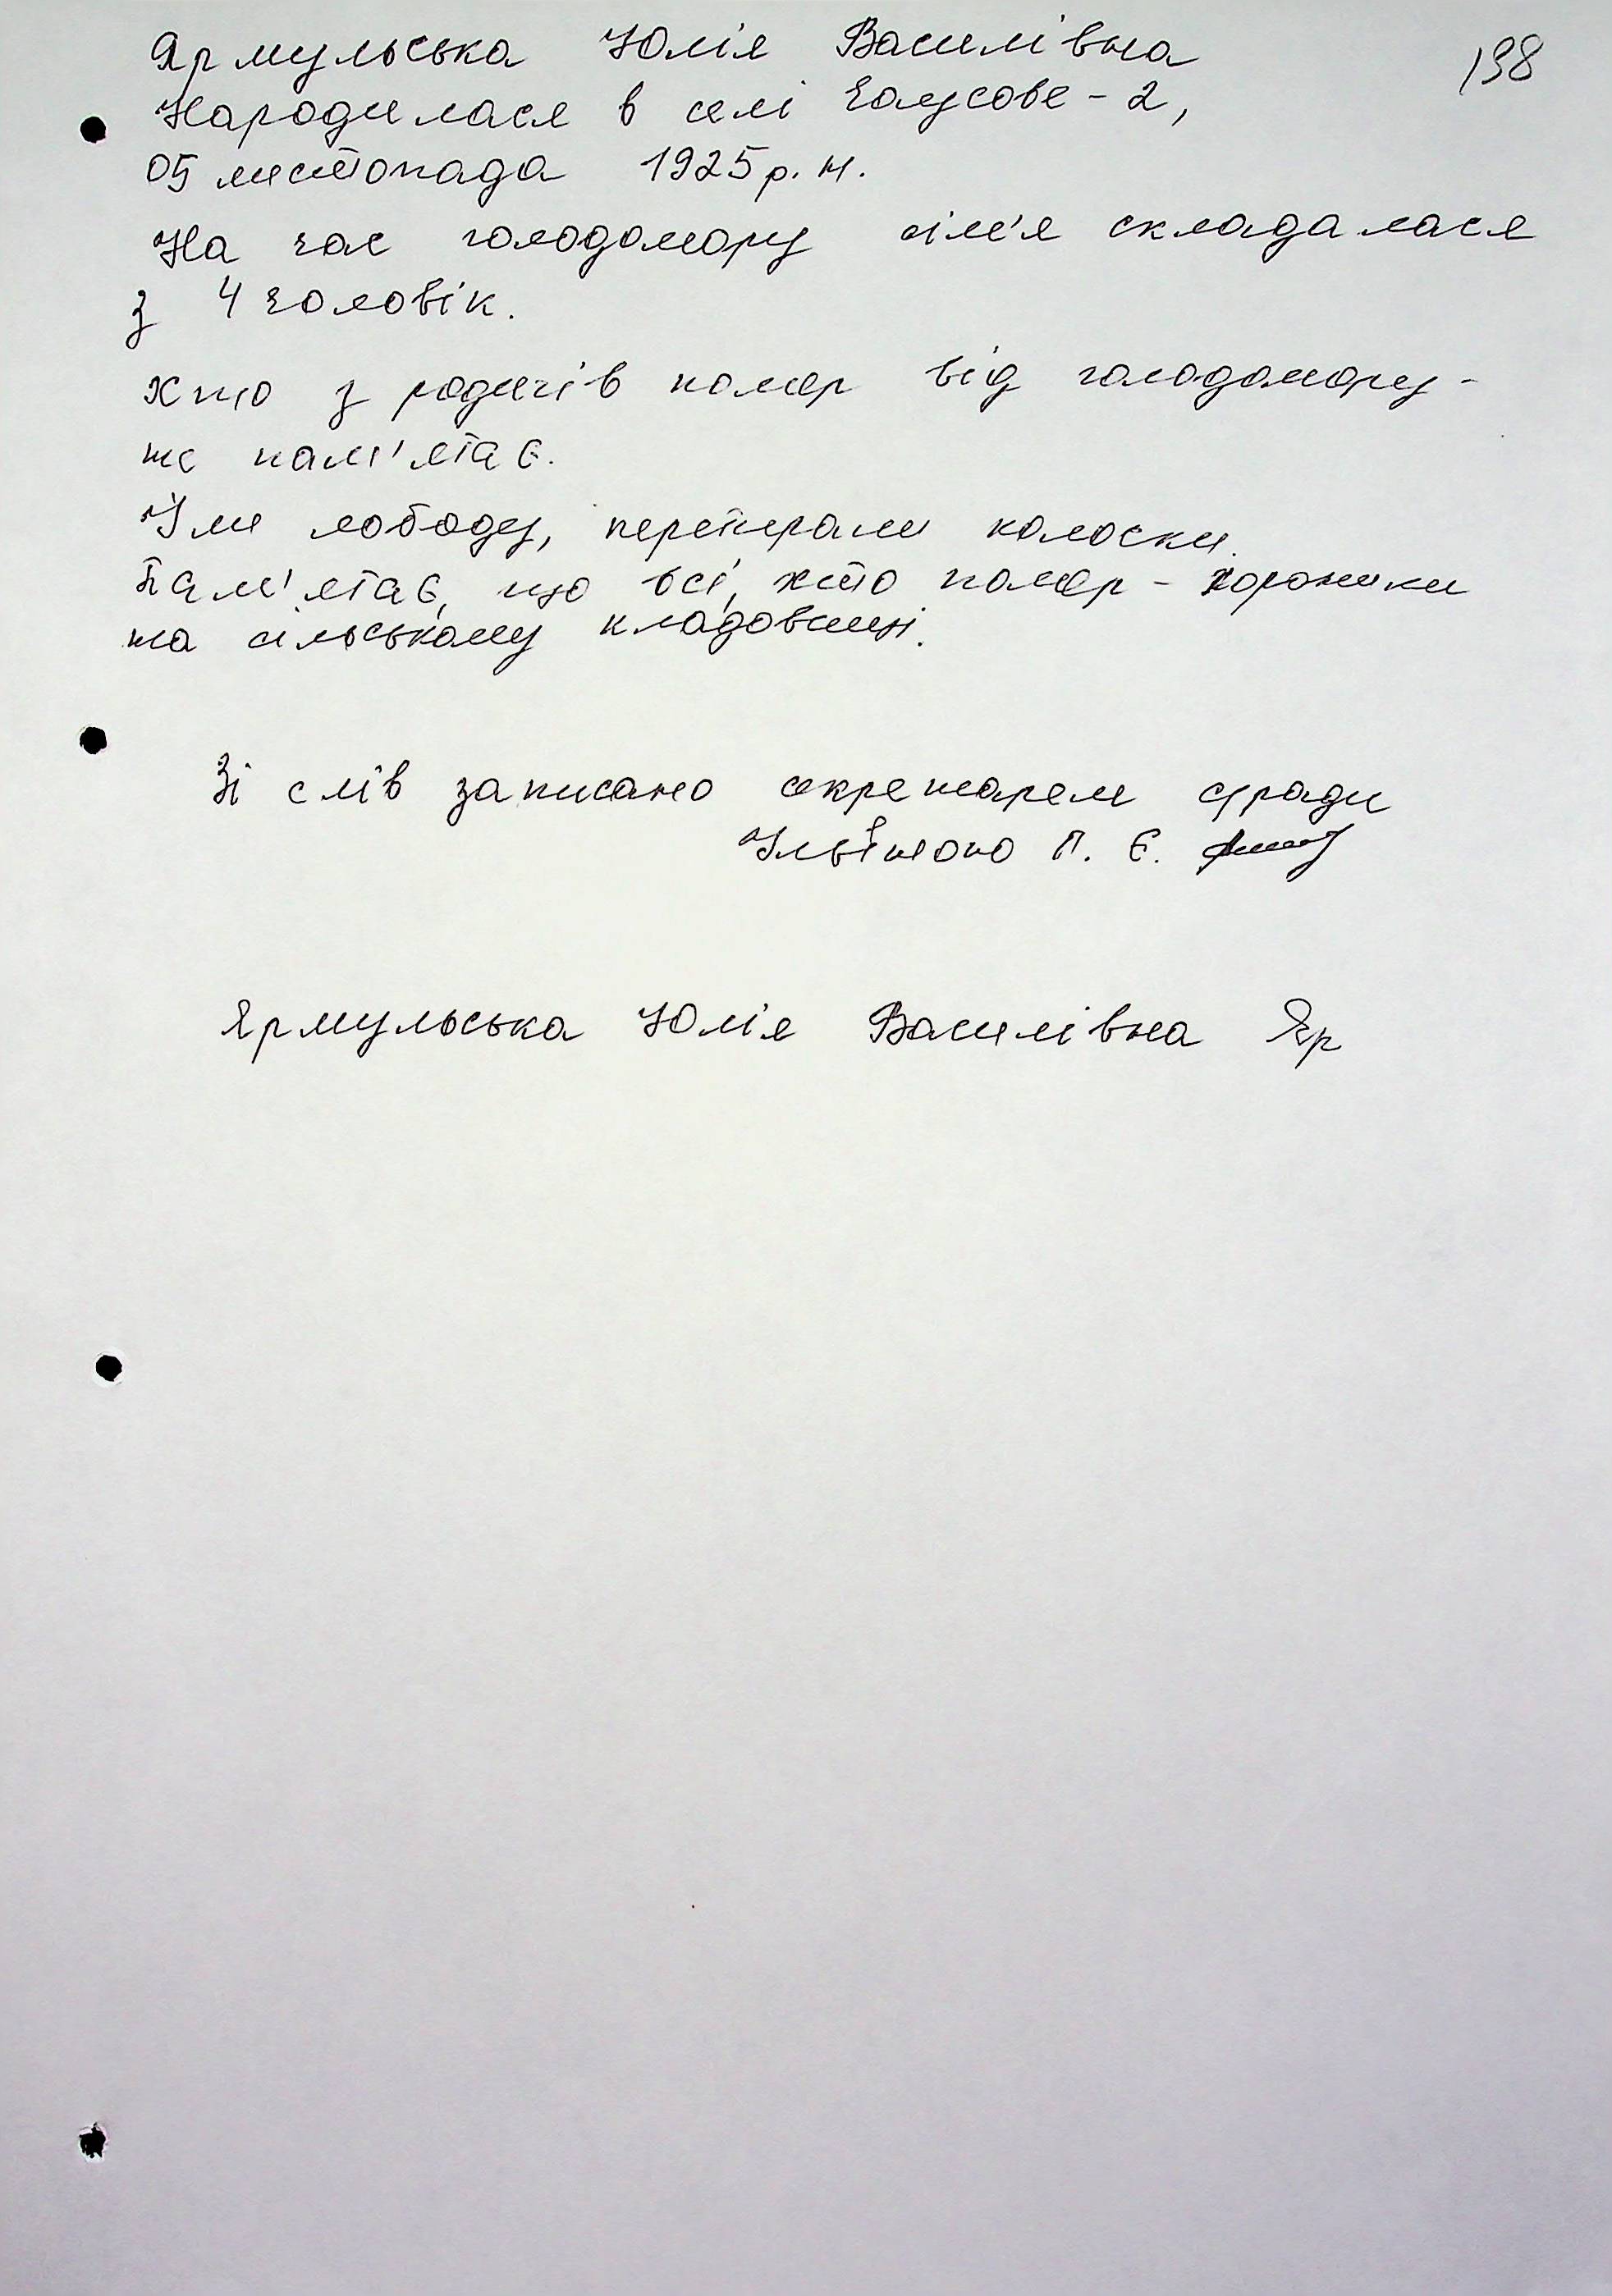 Ярмульська Юлія Василівна
198
Народилася в селі Чаусове-2,
05 листопада 1925 р.н.
На час голодомору сім'я складалася
з 4 чоловік.
Хто з родичів помер від голодомору -
не пам'ятає.
Їли лободу, перетирали колоски.
Пам'ятає, що всі, хто помер - хоронили
на сільському кладовищі.
Зі слів записано секретарем с/ради
П. Є.
Ярмульська Юлія Василівна Яр